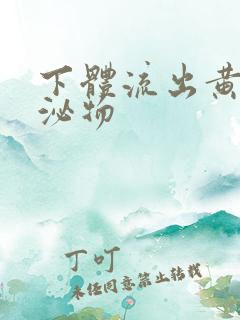 下體流出黃
泌物
丁叮
未经同意禁止转载